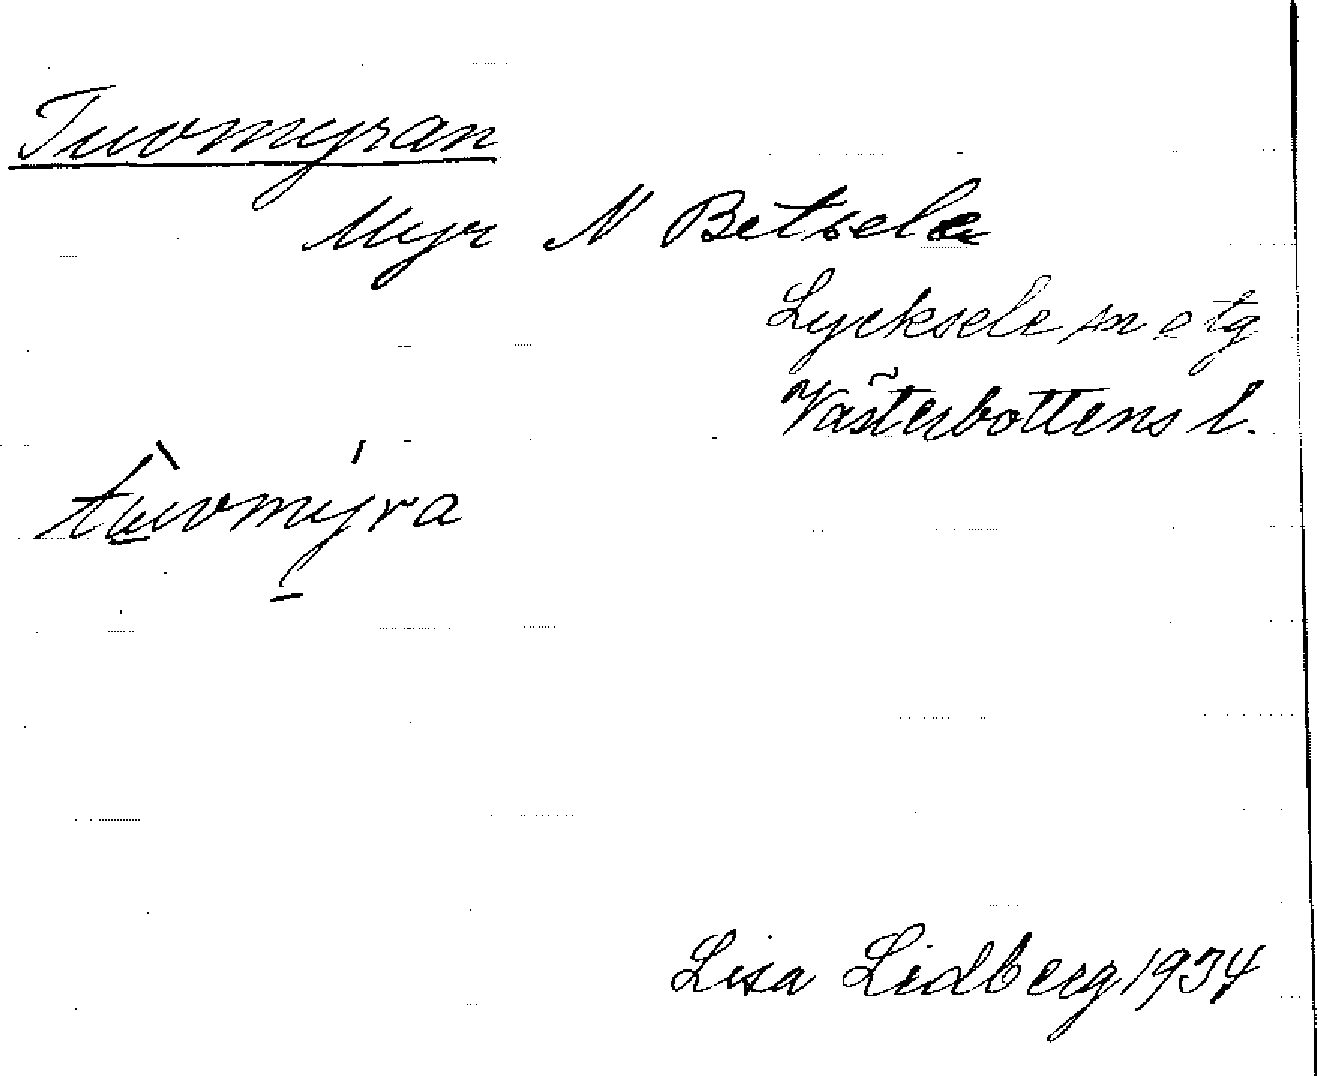 Tuvomyran
Myr N Betsele
Lycksele sn o tg
Västerbottens l.
tùvomýra
Lisa Lidberg 1934